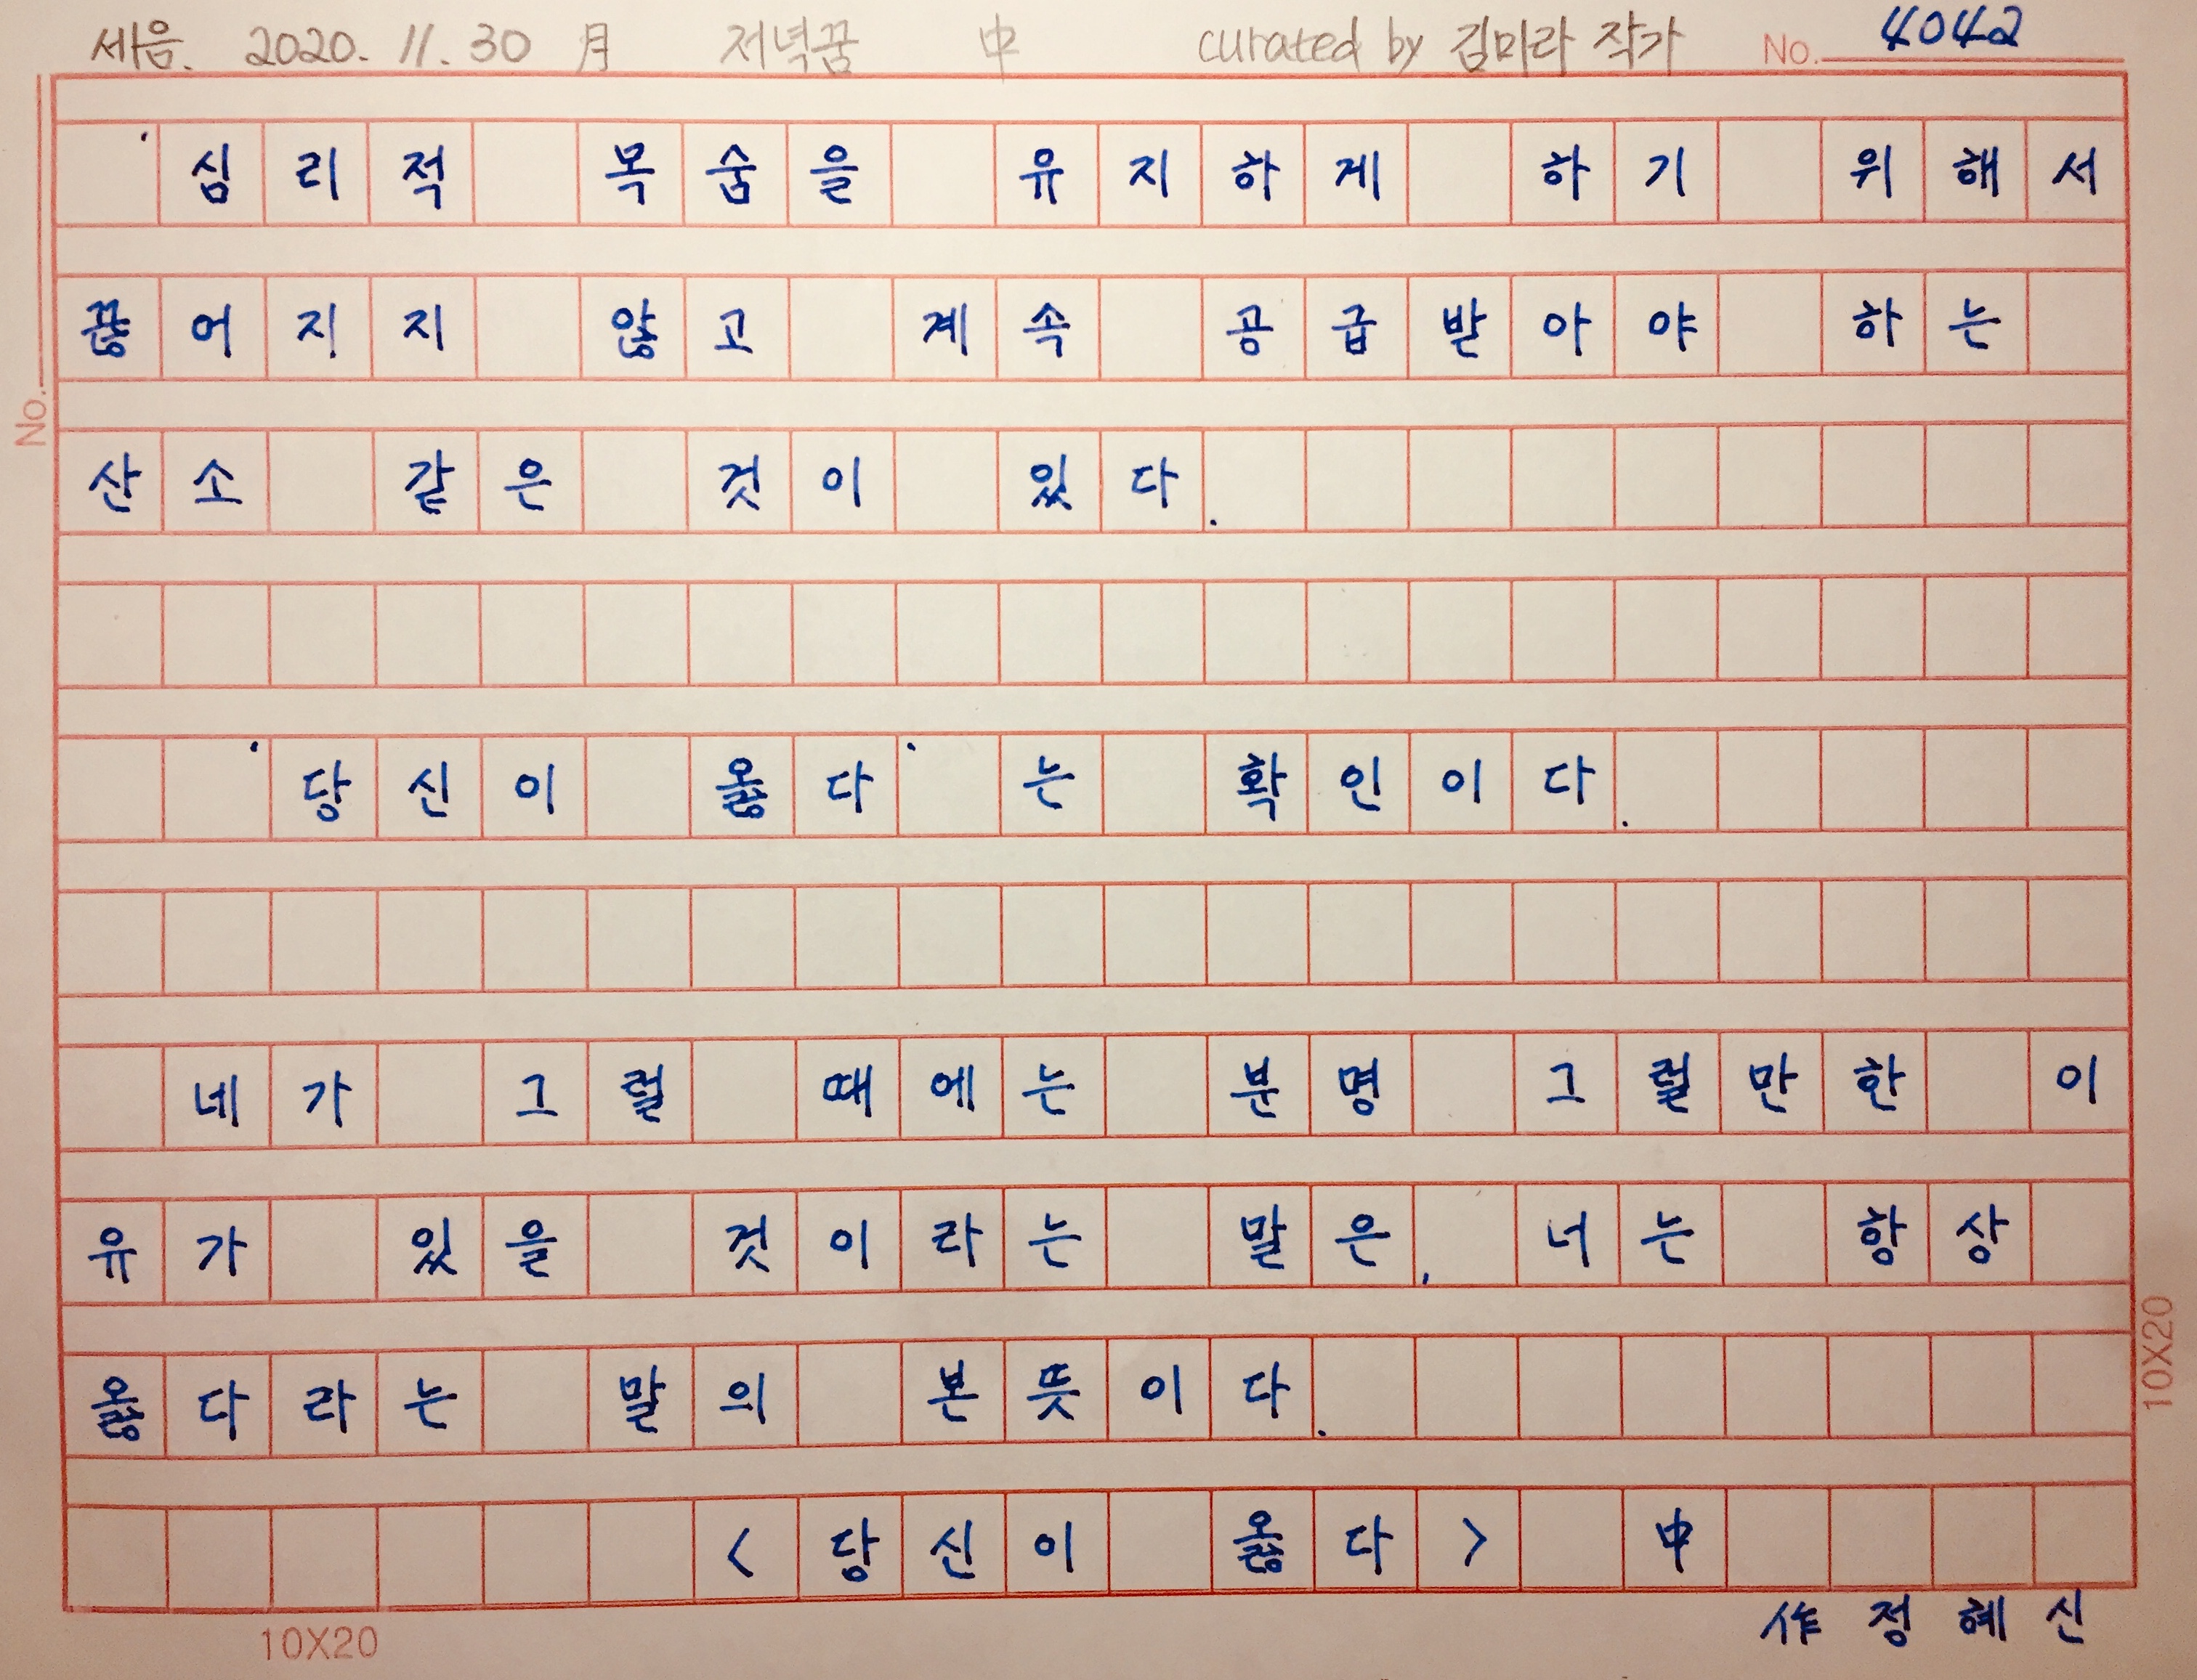 세음. 2020. 11. 30 月 저녁꿈 中 curated by 김미라 작가 No. 4042
' 심리적 목숨을 유지하게 하기 위해서
끊어지지 않고 계속 공급받아야 하는
산소 같은 것이 있다.
'당신이 옳다' 는 확인이다.
네가 그럴 때에는 분명 그럴만한 이
유가 있을 것이라는 말은, 너는 항상
옳다라는 말의 본뜻이다.
<당신이 옳다> 中
作 정혜신
No.
10X20
10X20